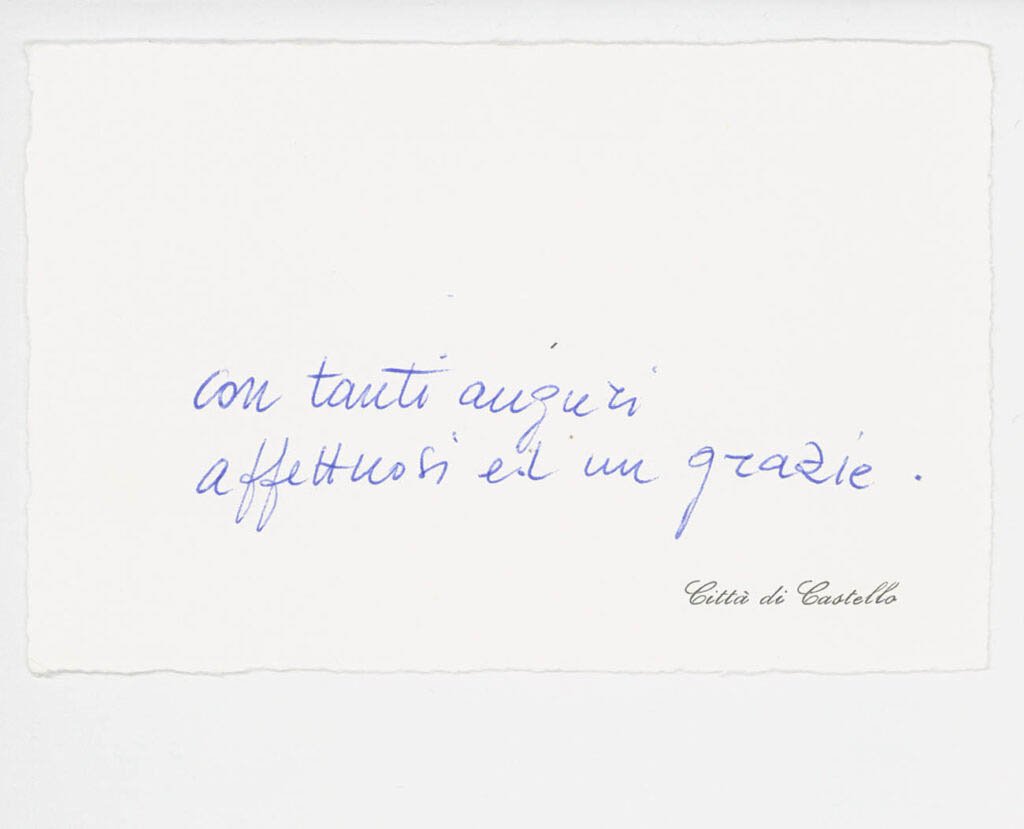 con tanti auguri
affettuosi ed un grazie.
Città di Castello